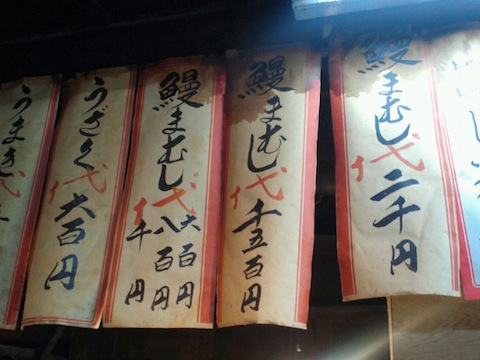 鰻まむし代二千円
鰻まむし代千五百円
鰻まむし代
六百円
八百円
千円
うざく代六百円
うまき代